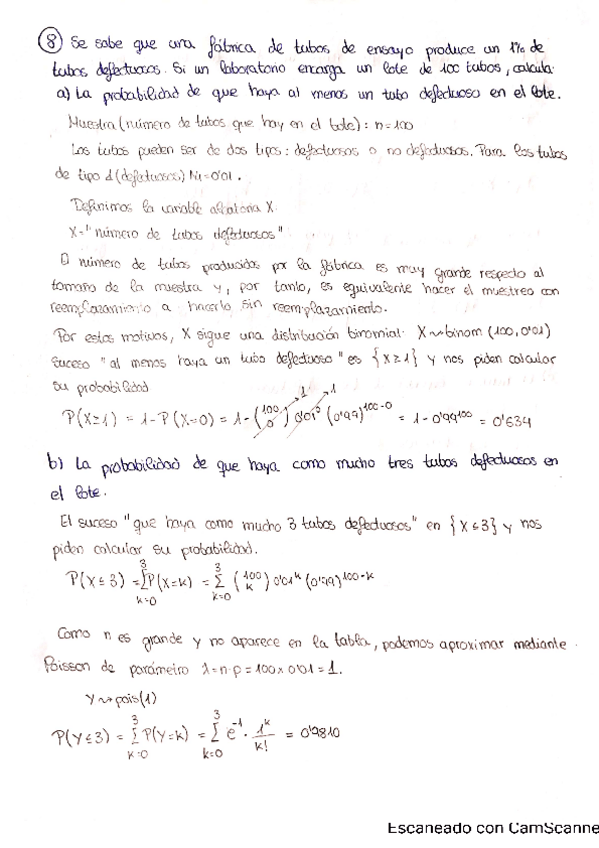 8 Se sabe que una fábrica de tubos de ensayo produce un 1% de
tubos defectuosos. Si un laboratorio encarga un lote de 100 tubos, calcula:
a) La probabilidad de que haya al menos un tubo defectuoso en el lote.
Muestra (número de tubos que hay en el lote): n=100
Los tubos pueden ser de dos tipos: defectuosos o no defectuosos. Para los tubos
de tipo d (defectuosos) =0'01.
Definimos la variable aleatoria X.
X="número de tubos defectuosos"
El número de tubos producidos por la fábrica es muy grande respecto al
tamaño de la muestra y, por tanto, es equivalente hacer el muestreo con
reemplazamiento a hacerlo sin reemplazamiento.
Por estos motivos, X sigue una distribución binomial: X⤳binom (100, 0'01)
Suceso "al menos haya un tubo defectuoso" es {X≥1} y nos piden calcular
su probabilidad
P(X≥1) = 1-P(X=0) = 1-(100 0) 0'01⁰ (0'99)¹⁰⁰⁻⁰ = 1-0'99¹⁰⁰ = 0'634
1 1
b) La probabilidad de que haya como mucho tres tubos defectuosos en
el lote.
El suceso "que haya como mucho 3 tubos defectuosos" en {X≤3} y nos
piden calcular su probabilidad.
P(X≤3) = ∑ₖ₌₀³ P(X=k) = ∑ₖ₌₀³ (100 k) 0'01ᵏ (0'99)¹⁰⁰⁻ᵏ
Como n es grande y no aparece en la tabla, podemos aproximar mediante
Poisson de parámetro λ=n·p=100×0'01=1.
Y⤳pois(1)
P(Y≤3) = ∑ₖ₌₀³ P(Y=k) = ∑ₖ₌₀³ e⁻¹ · 1ᵏ/k! = 0'9810
Escaneado con CamScanne